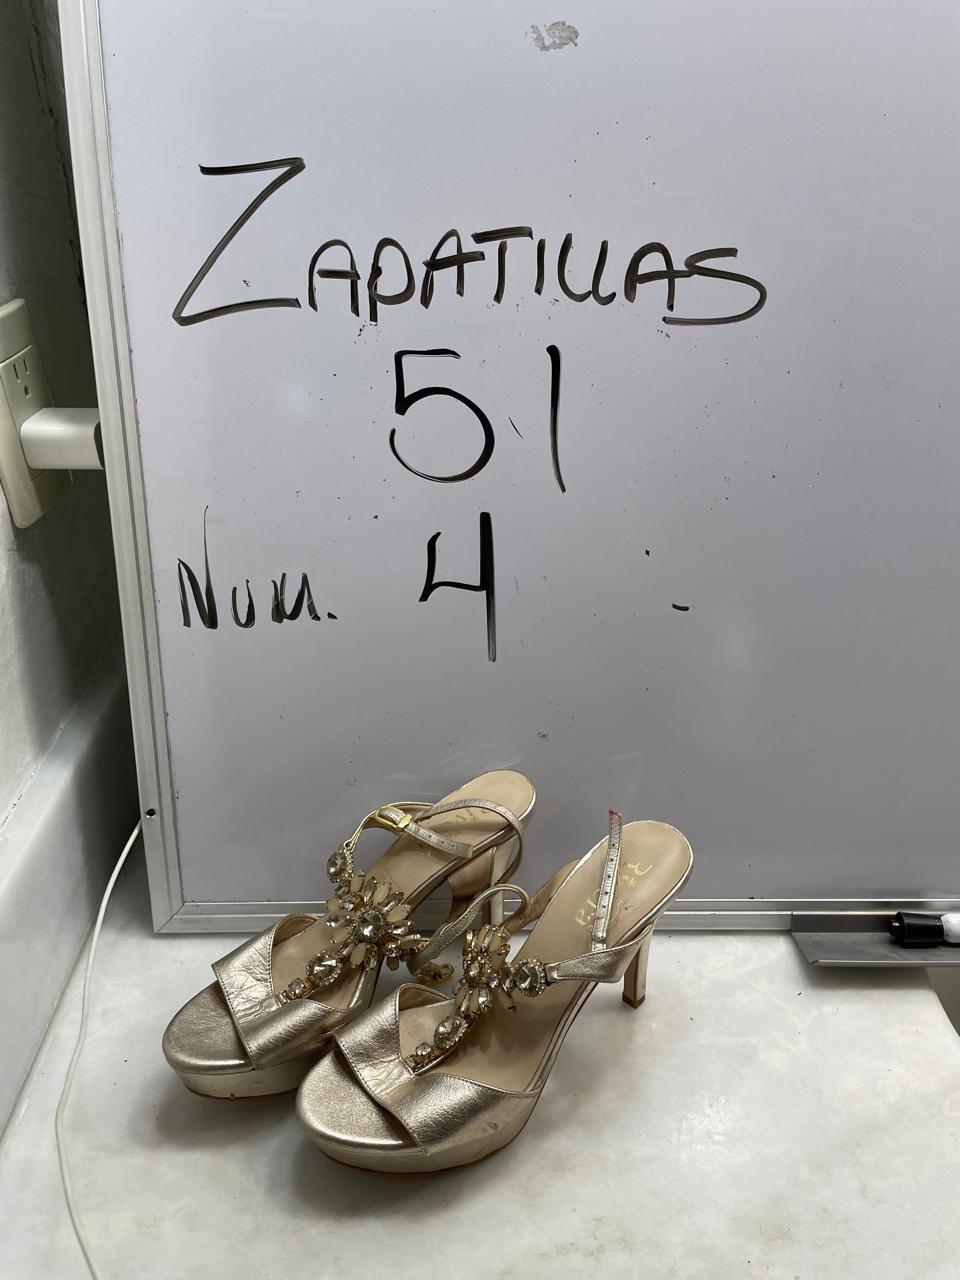 ZAPATILLAS
51
Num. 4